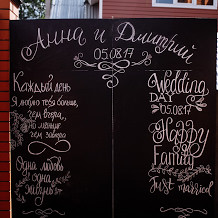 Анна и Дмитрий
05.08.17
Каждый день
Я люблю тебя больше,
чем вчера,
но меньше
чем завтра
Одна любовь
одна
жизнь
Wedding
DAY
05.08.17
Happy
Family
Just married